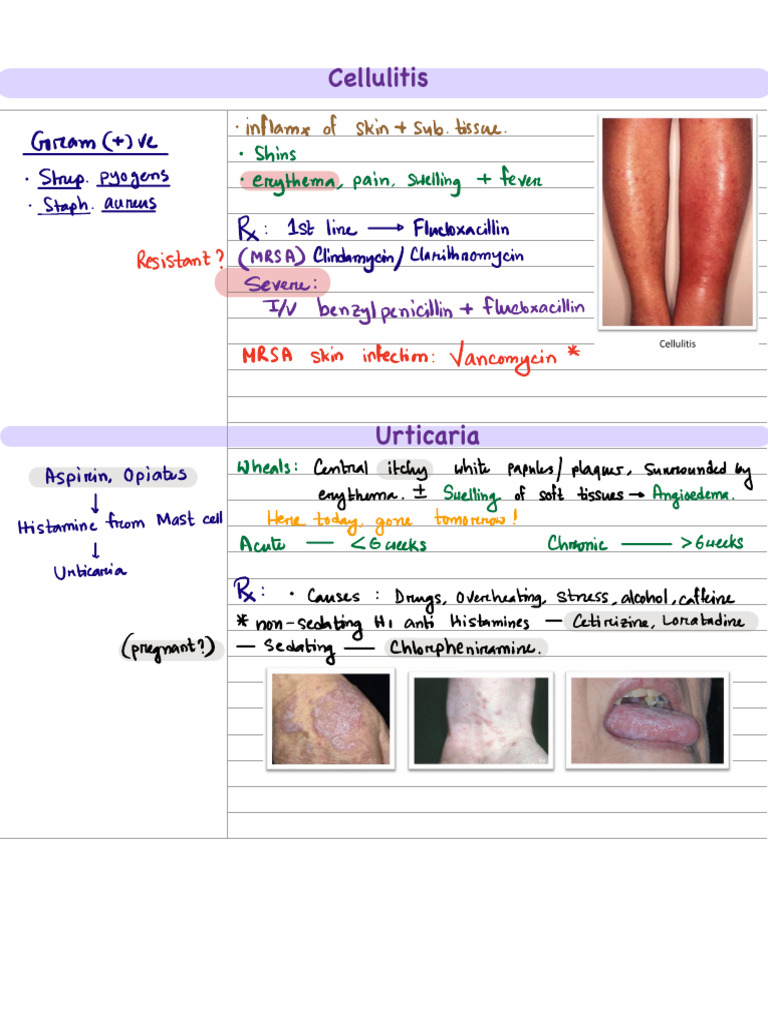 Cellulitis
Gram (+)ve
· Strep. pyogens
· Staph. aureus
· inflamx of skin + sub. tissue.
· Shins
· erythema, pain, swelling + fever
Rx: 1st line → Flucloxacillin
Resistant? (MRSA) Clindamycin/ Clarithromycin
Severe:
I/V benzylpenicillin + flucloxacillin
MRSA skin infection: Vancomycin *
Cellulitis
Urticaria
Aspirin, Opiates
↓
Histamine from Mast cell
↓
Urticaria
Wheals: Central itchy white papules/ plaques, surrounded by
erythema. ± Swelling of soft tissues → Angioedema.
Here today, gone tomorrow!
Acute — < 6 weeks Chronic — > 6 weeks
Rx: · Causes : Drugs, Overheating, Stress, alcohol, caffeine
* non-sedating H1 anti histamines — Cetirizine, Loratadine
(pregnant?) — Sedating — Chlorpheniramine.